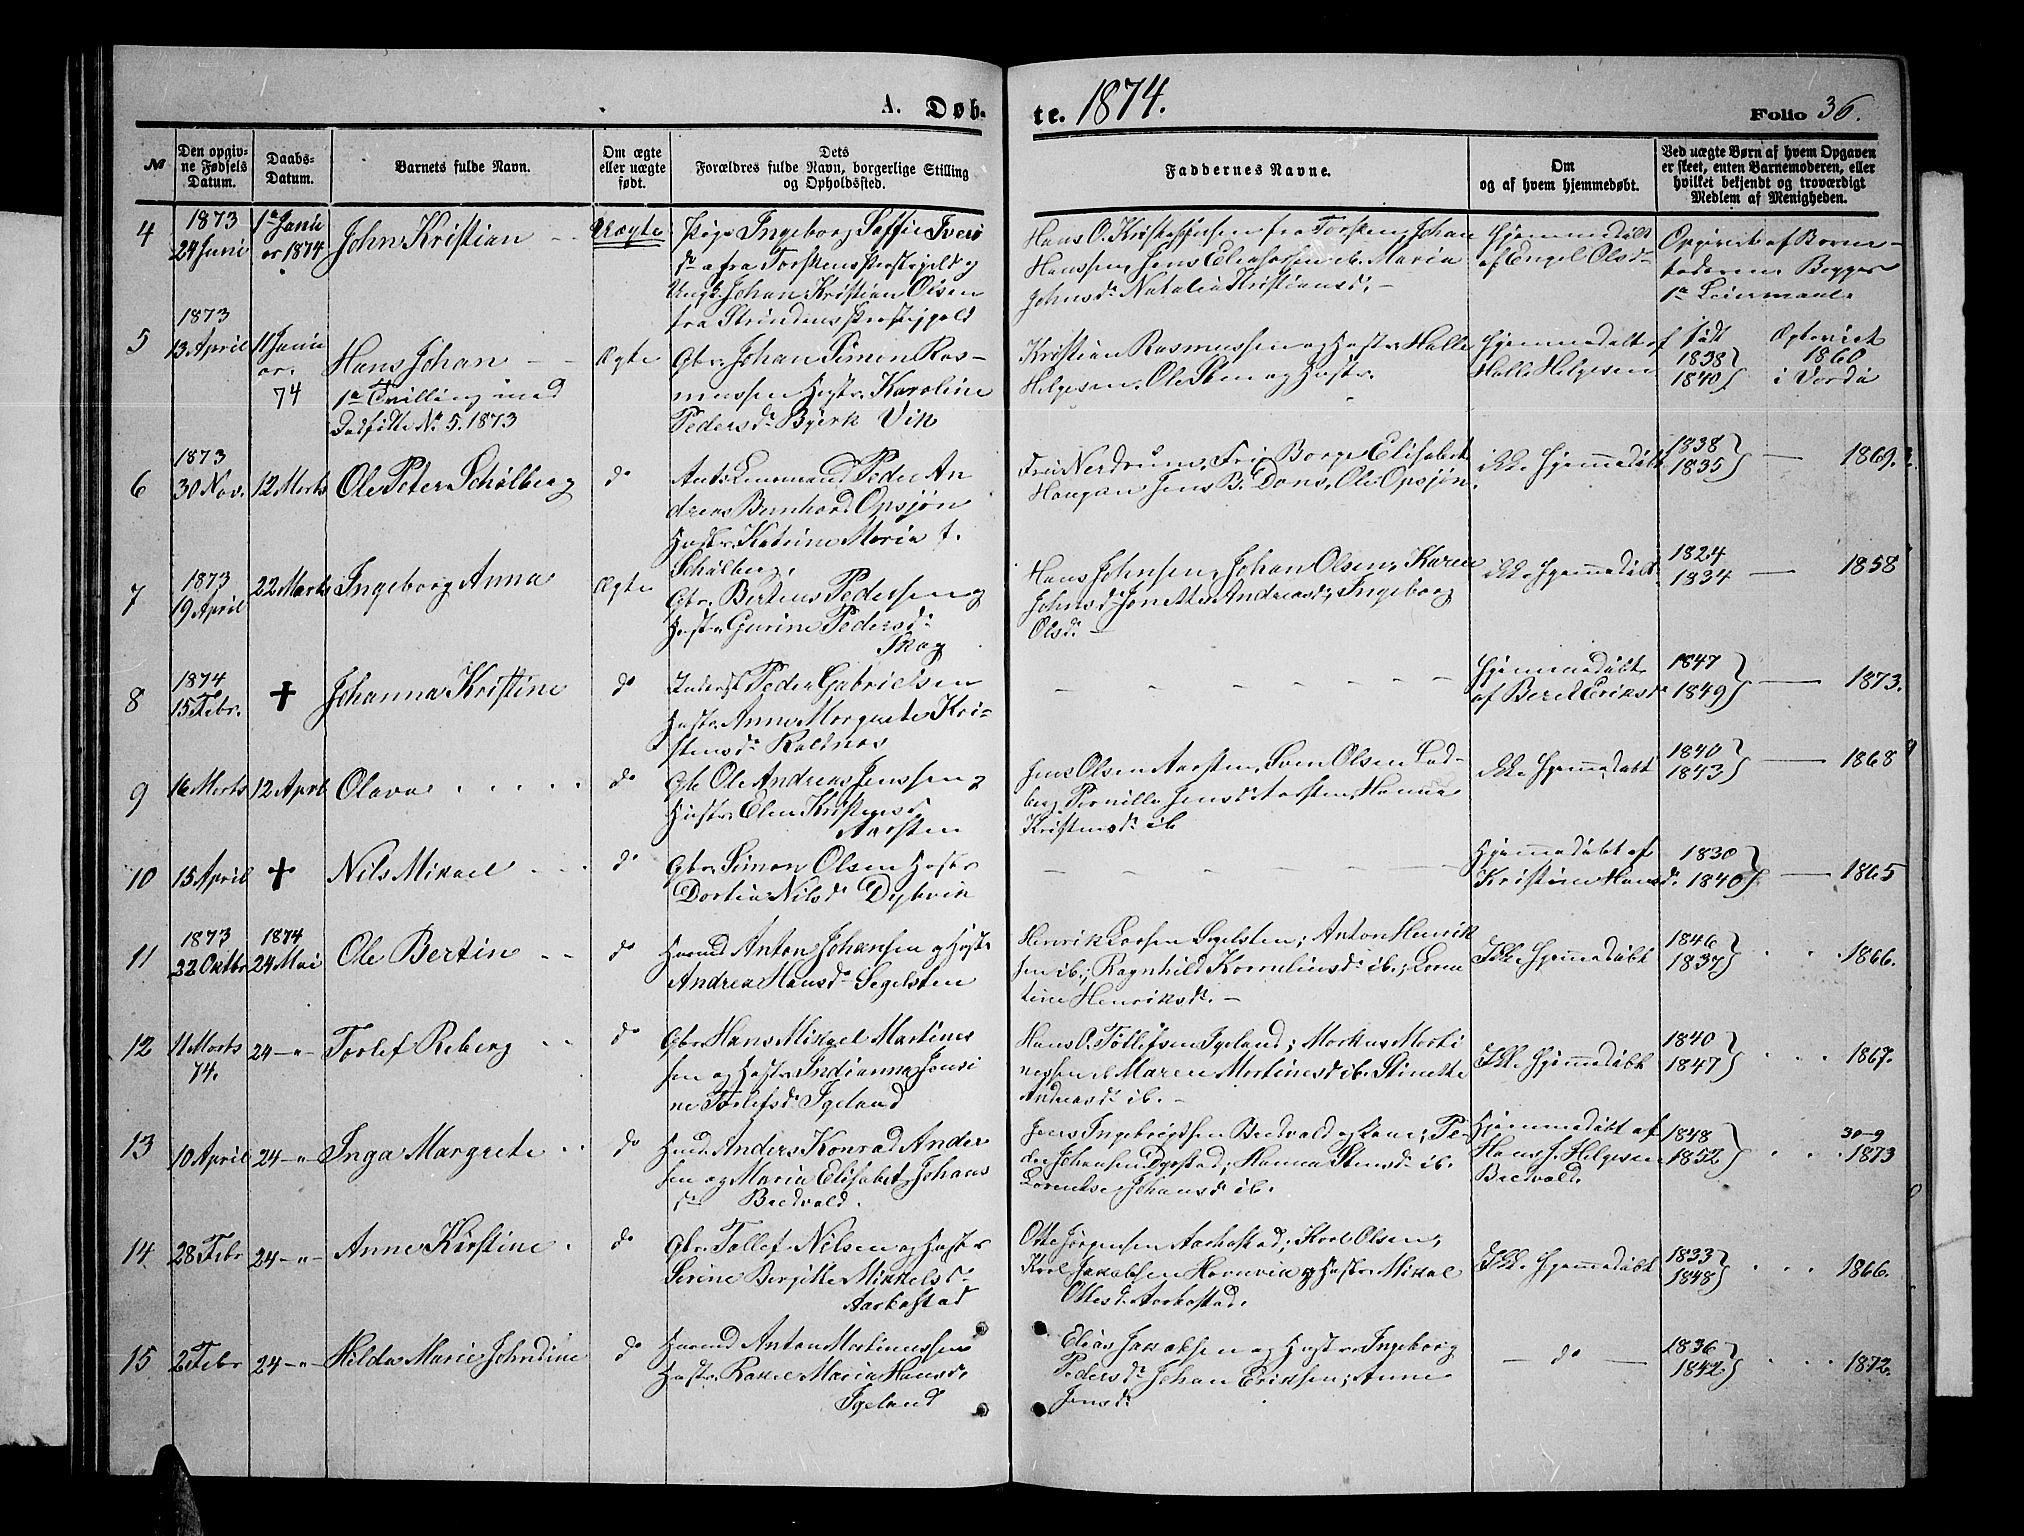 A. Døb-
te. 1874.
Folio 36.
№
Den opgiv-
ne Fødsels
Datum.
Daabs-
Datum.
Barnets fulde Navn.
Om ægte
eller uægte
født.
Dets
Forældres fulde Navn, borgerlige Stilling
og Opholdssted.
Faddernes Navne.
Om
og af hvem hjemmedøbt.
Ved uægte Børn af hvem Opgaven
er skeet, enten Barnemoderen, eller
hvilket bekjendt og troværdigt
Medlem af Menigheden.
4
1873
24 Juni
1a Janu
ar 1874
John Kristian
Uægte
Pige Ingeborg Soffie Ivers
dr a fra Torskens Præstegjeld og
Ungk. Johan Kristian Olsen
fra Strindens Præstegjæld
Hans O. Kristoffersen fra Torsken, Johan
Hanssen, Jens Eliassen ib. Maria
Johnsdr Natalia Kristiansdr
Hjemmedøbt
af Engel Olsdr
Opgivet af Barne-
faderen Begges
1a Leiermaal
5
1873
13 April
11 Janu
ar
74
Hans Johan
1a Tvilling med
Dødfødte No 5. 1873
Ægte
Gbr. Johan Simon Ras-
mussen Hustr. Karoline
Pedersdr Bjerk Vik
Kristian Rasmussen og Hustr Halle
Helgesen, Ole Sten og Hustr.
Hjemmedøbt af
Halle Helgesen
født
1838
1840
Ægteviet
1860
i Vordø
6
1873
30 Nov.
12 Marts
Ole Peter Schølberg
do
Ants. Lensmand Peder An
dreas Bernhard Opsjøn
Hustr. Katrine Maria f.
Schølberg.
Fru Nerdrum, Frk. Borge Elisabet
Haugan Jens B. Dons, Ole Opsjøn.
ikke Hjemmedøbt
1838
1835
1869.
7
1873
19 April
22 Marts
Ingeborg Anna
Ægte
Gbr. Bertius Pedersen og
Hustr Gurine Pedersdr
Skog
Hans Johnsen, Johan Olsen, Karen
Johnsdr Jonetta Andreasdr, Ingeborg
Olsdr
ikke Hjemmedøbt
1824
1834
1858
8
1874
15 Febr.
✝
Johanna Kristine
do
Inderst Peder Gabrielsen
Hustr Anne Margrete Kri-
stensdr Kaldnes
Hjemmedøbt
af Beret Eriksdr
1847
1849
1873.
9
16 Marts
12 April
Olava
do
Gb Ole Andreas Jenssen og
Hustr. Elen Kristensdr
Aarsten
Jens Olsen Aarsten, Sven Olsen Lad-
berg, Pernille Jensdr Aarsten, Hanna
Kristensdr ib
ikke Hjemmedøbt
1840
1843
1868
10
15 April
✝
Nils Mikael
do
Gbr Simon Olsen Hustr
Dortia Nilsdr Dybvik
Hjemmedøbt af
Kristine Hansdr
1830
1840
1865
11
1873
22 Oktbr
1874
24 Mai
Ole Bertin
do
Husmd Anton Johansen og Hustr
Andrea Hansdr Segelsten
Henrik Larsen Segelsten; Anton Henrik
sen ib.; Ragnhild Korneliusdr ib.; Loren
tine Henriksdr.
Ikke Hjemmedøbt
1846
1837
1866.
12
11 Marts
74.
24 -"-
Torlef Reberg
do
Gbr Hans Mikael Martines
sen og Hustr Indianna Jonsi
ne Torlefsdr Igeland
Hans O. Tollefsen Igeland; Markus Marti
nessen ib Maren Martinesdr ib. Stinette
Andreasdr ib.
Ikke Hjemmedøbt
1840
1847
1867.
13
10 April
24 -"-
Inga Margrete
do
Husmd. Anders Konrad Ander
sen og Maria Elisabet Johans
dr Bredvald.
Jens Ingebrigtsen Bredvald og Kone; Pe-
der Johansen Dyrstad; Hanna Stensdr ib.
Lorentse Johansdr ib.
Hjemmedøbt af
Hans J. Helgesen
Bredvald.
1848
1852
30-9
1873
14
28 Febr
24 -"-
Anne Kirstine
do
Gbr. Tollef Nilsen og Hustr
Serine Bergitte Mikkelsdr
Aarkastad
Otte Jørgensen Aarkastad; Karl Olsen;
Karl Jakobsen Hornvik og Hustr Mikal
Ottesdr Aarkastad.
Ikke Hjemmedøbt
1833
1848
1866.
15
2 Febr
24 -"-
Hilda Marie Johndine
do
Husmd Anton Martinussen
Hustr Rakel Maria Hansdr
Igeland
Elias Jakobsen og Hustr Ingeborg
Pedersdr Johan Eriksen; Anne
Jensdr
- do -
1836
1842
1872.